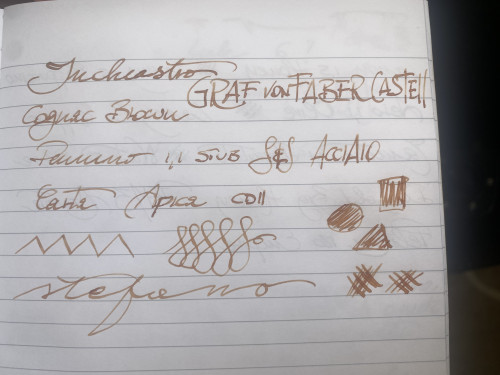 Inchiostro GRAF VON FABER CASTELL
Cognac Brown
Pennino 1,1 STUB S&S ACCIAIO
Carta Apica CD11
stefano